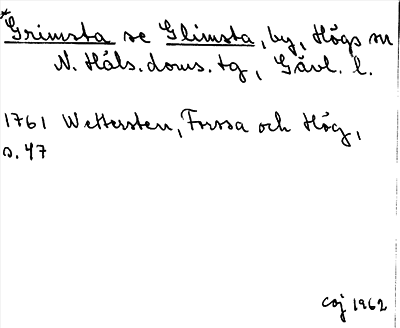 *Grimsta se Glimsta, by, Högs sn
N. Häls. doms. tg, Gävl. l.
1761 Wettersten, Forssa och Hög,
s. 47
CGJ 1962